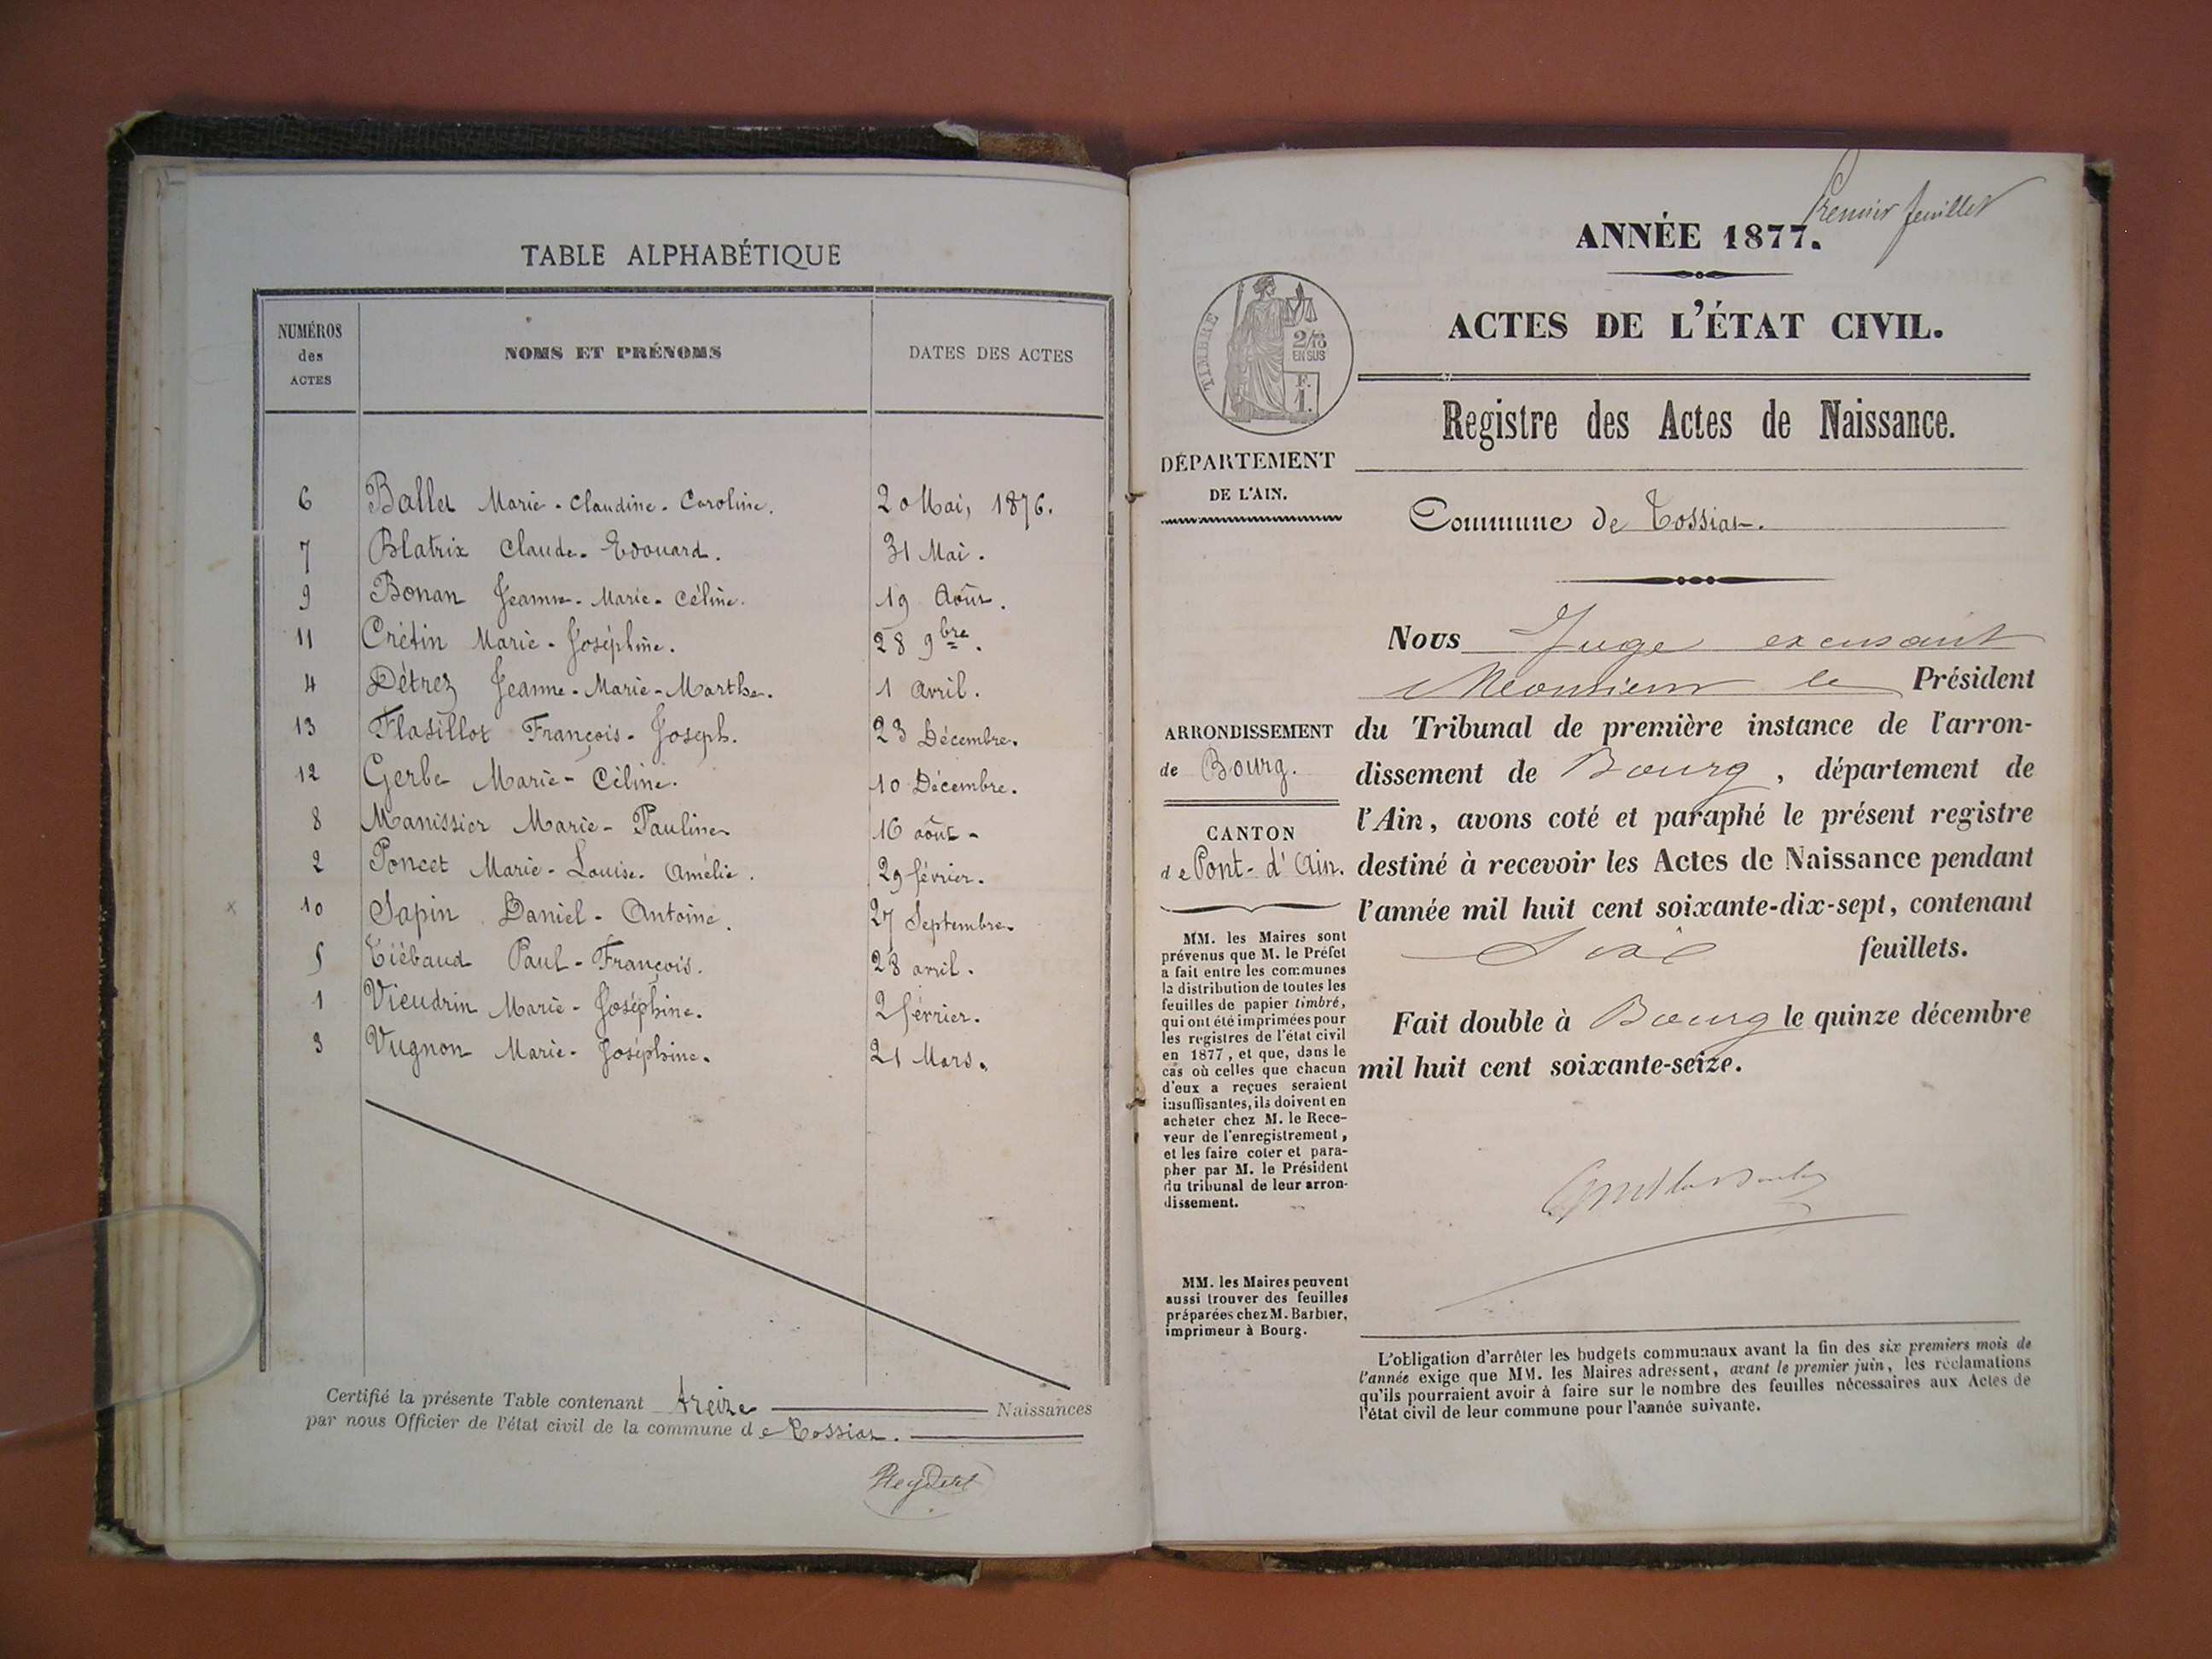 TABLE ALPHABÉTIQUE
NUMÉROS des ACTES NOMS ET PRÉNOMS DATES DES ACTES
6 Ballet Marie-Claudine-Caroline. 20 Mai, 1876.
7 Blatrix Claude-Edouard. 31 Mai.
9 Bonan Jeanne-Marie-Céline. 19 Août.
11 Crétin Marie-Joséphine. 28 9bre.
4 Détrez Jeanne-Marie-Marthe. 1 avril.
13 Flasillot François-Joseph. 23 Décembre.
12 Gerbe Marie-Céline. 10 Décembre.
8 Manissier Marie-Pauline 16 août -
2 Poncet Marie-Louise-Amélie. 29 février.
10 Sapin Daniel-Antoine. 27 Septembre.
5 Tiébaud Paul-François. 28 avril.
1 Vieudrin Marie-Joséphine. 2 février.
3 Vugnon Marie-Joséphine. 21 Mars.
Certifié la présente Table contenant treize Naissances
par nous Officier de l'état civil de la commune de Tossiat.
Premier feuillet
ANNÉE 1877.
ACTES DE L'ÉTAT CIVIL.
Registre des Actes de Naissance.
TIMBRE
2/10
EN SUS
F.
1.
DÉPARTEMENT
DE L'AIN.
Commune de Tossiat.
ARRONDISSEMENT
de Bourg.
CANTON
de Pont-d'Ain.
MM. les Maires sont
prévenus que M. le Préfet
a fait entre les communes
la distribution de toutes les
feuilles de papier timbré,
qui ont été imprimées pour
les registres de l'état civil
en 1877, et que, dans le
cas où celles que chacun
d'eux a reçues seraient
insuffisantes, ils doivent en
acheter chez M. le Rece-
veur de l'enregistrement,
et les faire coter et para-
pher par M. le Président
du tribunal de leur arron-
dissement.
MM. les Maires peuvent
aussi trouver des feuilles
préparées chez M. Barbier,
imprimeur à Bourg.
Nous Juge excusant
Monsieur le Président
du Tribunal de première instance de l'arron-
dissement de Bourg, département de
l'Ain, avons coté et paraphé le présent registre
destiné à recevoir les Actes de Naissance pendant
l'année mil huit cent soixante-dix-sept, contenant
Six feuillets.
Fait double à Bourg le quinze décembre
mil huit cent soixante-seize.
L'obligation d'arrêter les budgets communaux avant la fin des six premiers mois de
l'année exige que MM. les Maires adressent, avant le premier juin, les réclamations
qu'ils pourraient avoir à faire sur le nombre des feuilles nécessaires aux Actes de
l'état civil de leur commune pour l'année suivante.